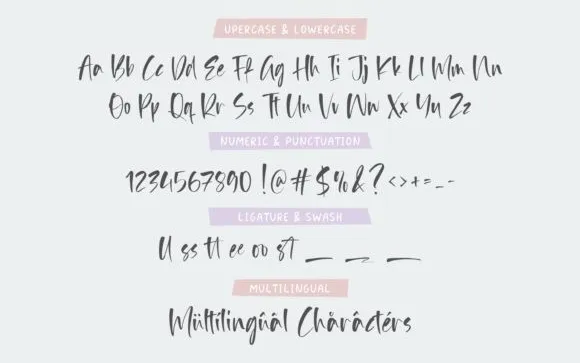 UPERCASE & LOWERCASE
Aa Bb Cc Dd Ee Ff Gg Hh Ii Jj Kk Ll Mm Nn
Oo Pp Qq Rr Ss Tt Uu Vv Ww Xx Yy Zz
NUMERIC & PUNCTUATION
1234567890 !@#$%&? <>+=_-
LIGATURE & SWASH
ll ss tt ee oo st _ _ _
MULTILINGUAL
Mültilingúâl Chåráctérs